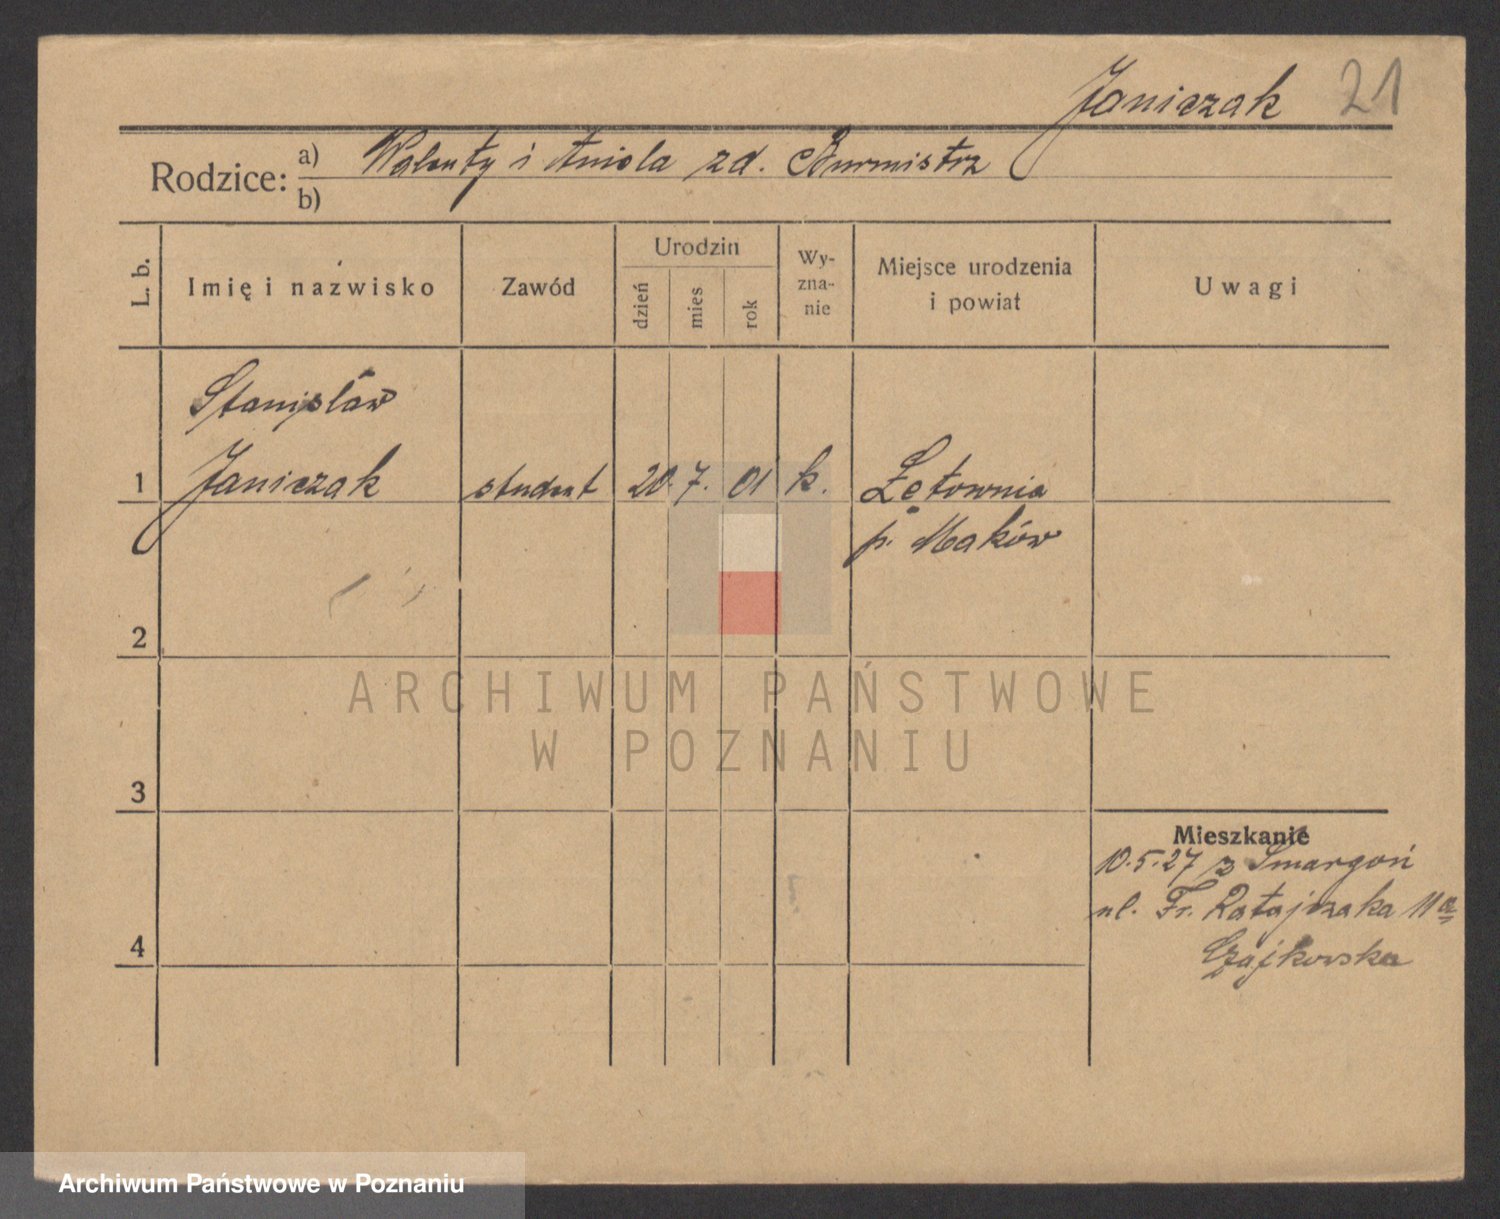 Janiczak 21
Rodzice: a) Walenty i Aniela zd. Burmistrz
b)
L. b. Imię i nazwisko Zawód Urodzin dzień mies rok Wy-zna-nie Miejsce urodzenia i powiat Uwagi
Stanisław
1 Janiczak student 20. 7. 01 k. Łętownia
p. Maków
2
ARCHIWUM PAŃSTWOWE
W POZNANIU
3
Mieszkanie
10.5.27 z Smargoń
ul. Fr. Ratajczaka 11a
4 Czajkowska
Archiwum Państwowe w Poznaniu